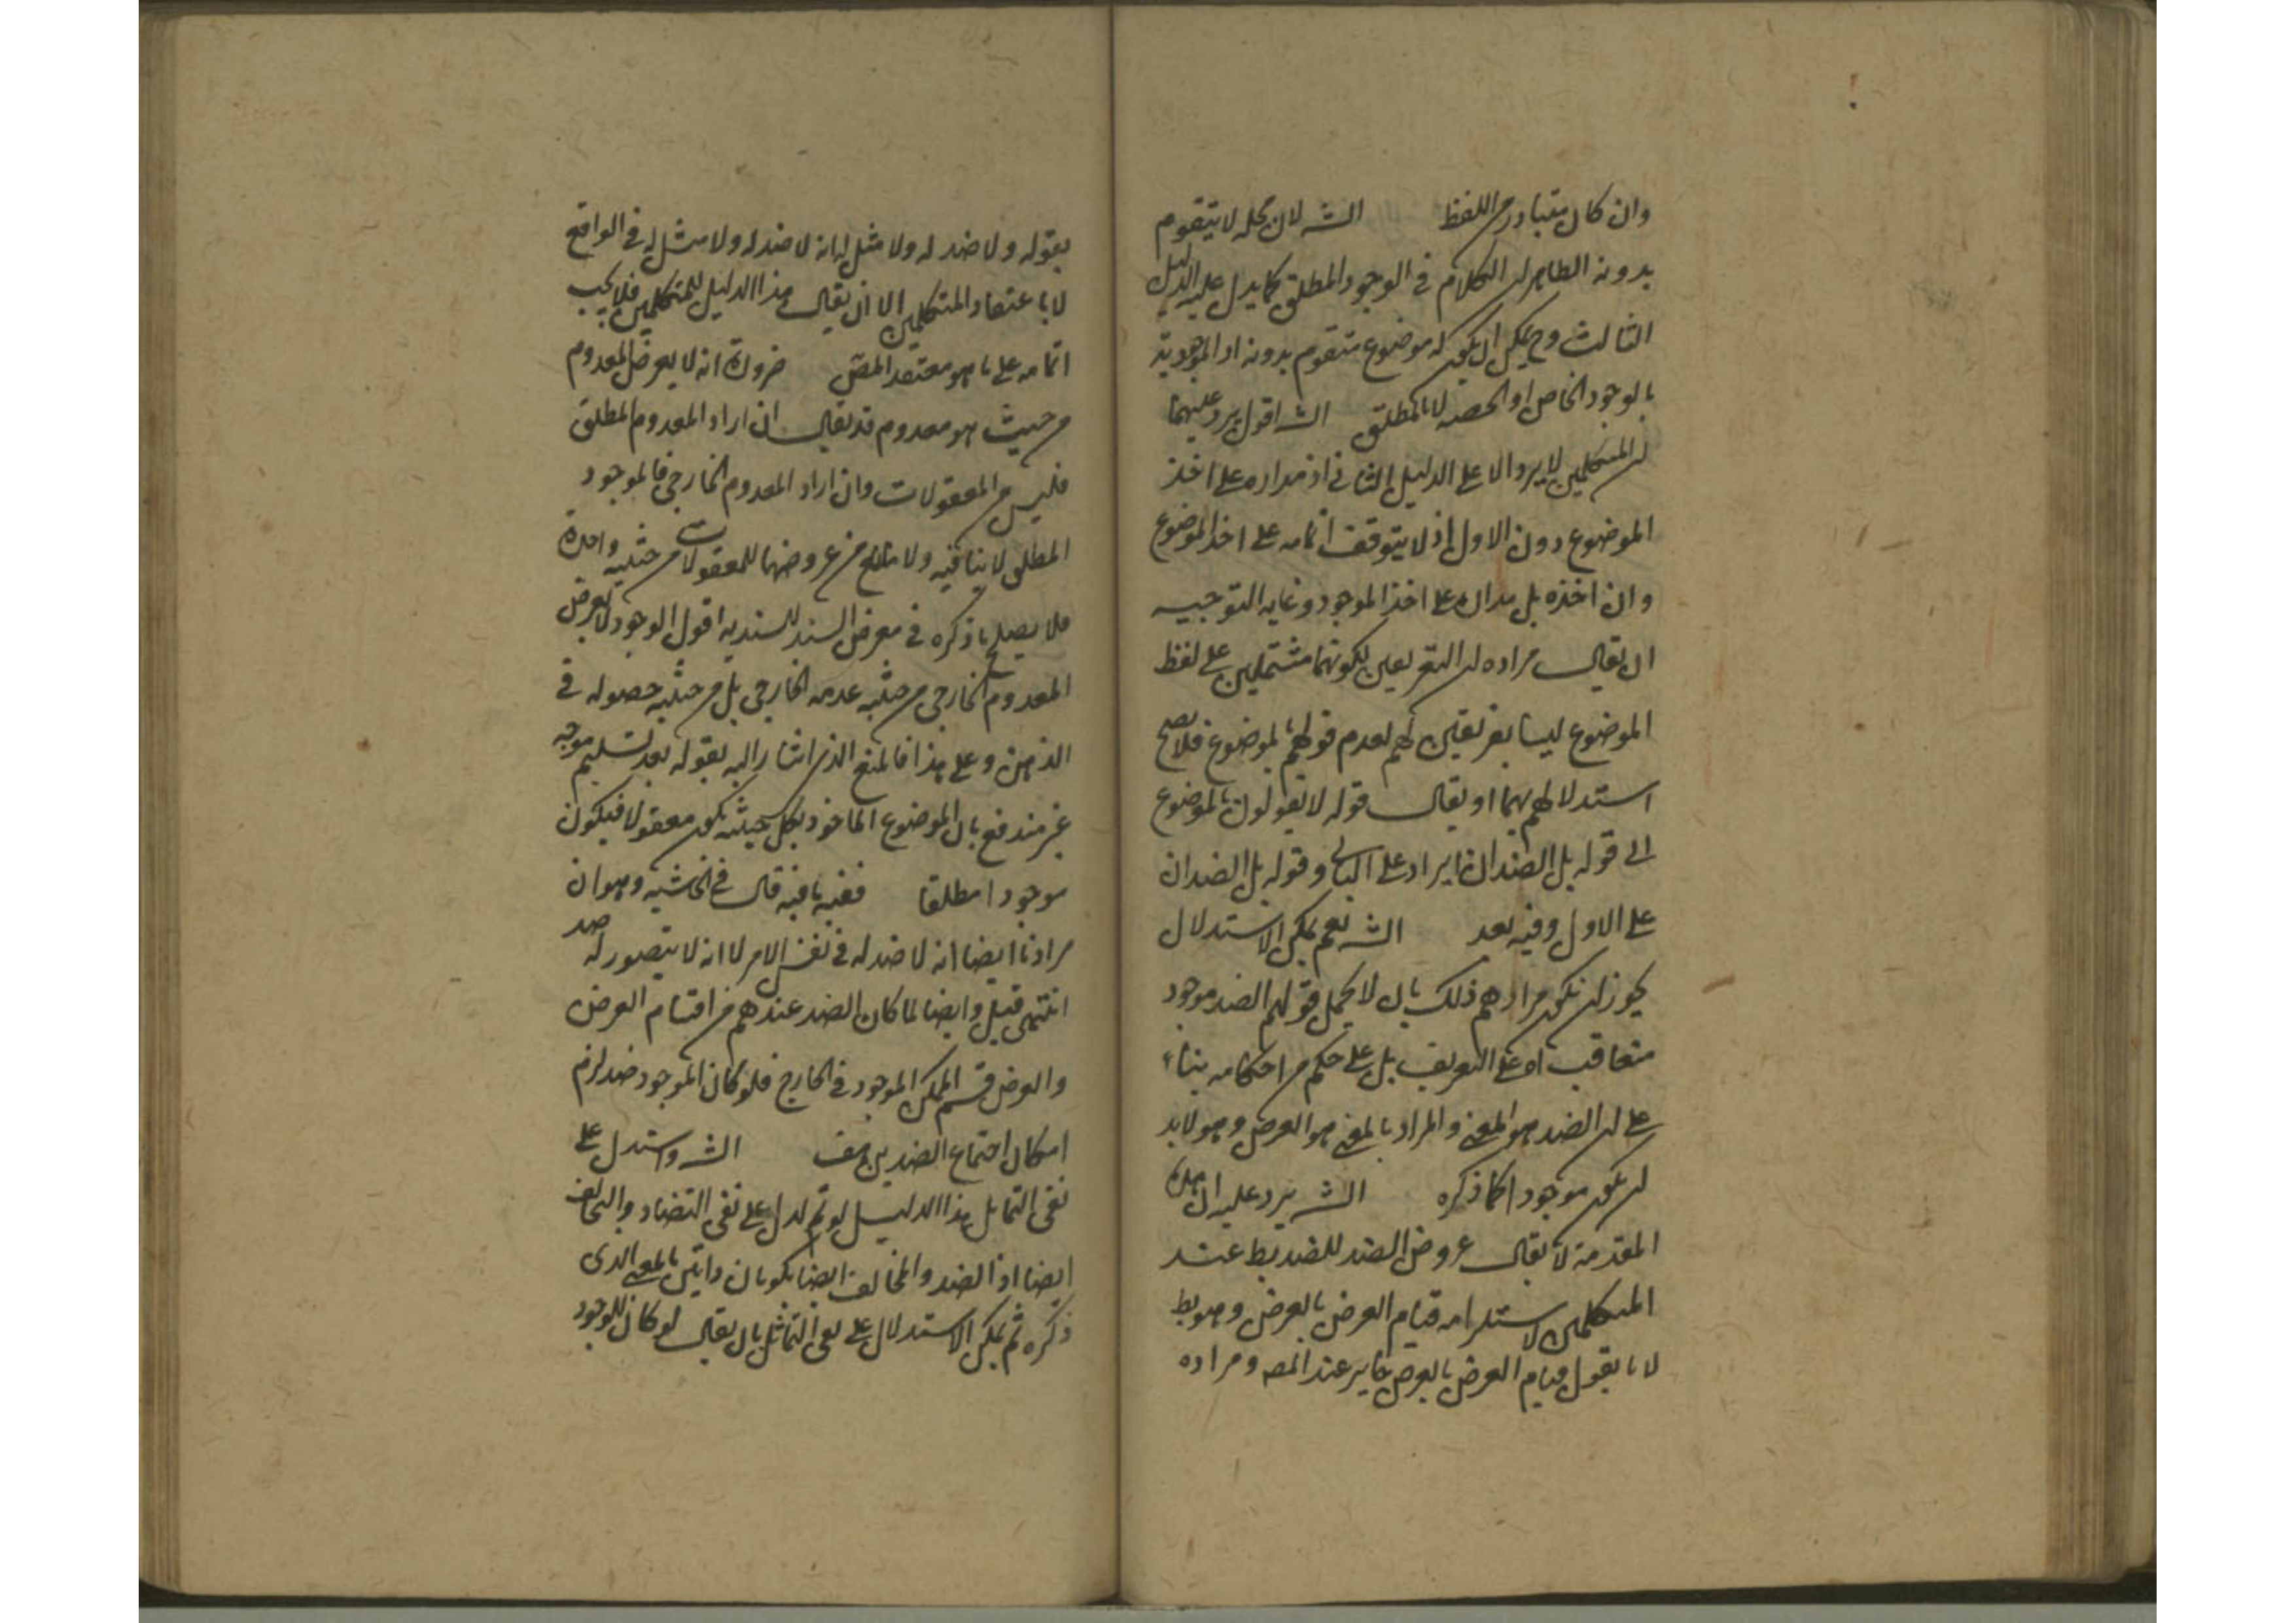 وان كان متبادر من اللفظ الشـ لان محله لا يتقوم
بدونه الظاهر ان الكلام في الوجود المطلق كما يدل عليه الدليل
الثالث وح يمكن ان يكون له موضوع متقوم بدونه اذ الموجودية
بالوجود الخاص او الحصه لا بالمطلق الشـ اقول يرد عليهما
ان المتكلمين لا يرد الا على الدليل الثاني اذ مداره على اخذ
الموضوع دون الاول اذ لا يتوقف اتمامه على اخذ الموضوع
وان اخذه بل مداره على اخذ الموجود وغايه التوجيه
ان يقال مراده ان التعريفين لكونهما مشتملين على لفظ
الموضوع ليسا بتعريفين لهم لعدم قولهم بالموضوع فلا يصح
استدلالهم بهما او يقال قوله لا يقولون بالموضوع
الى قوله بل الضدان ايراد على الثاني وقوله بل الضدان
على الاول وفيه بعد الشـ نعم يمكن الاستدلال
يجوز ان يكون مرادهم ذلك بان لا يحمل قولهم الضد موجود
متعاقب اه على التعريف بل على حكم من احكامه بناء
على ان الضد هو المعنى والمراد بالمعنى هو العرض وهو لابد
ان يكون موجودا كما ذكره الشـ يرد عليه ان هذه
المقدمة لا يقال عروض الضد للضد بط عند
المتكلمين لاستلزامه قيام العرض بالعرض وهو بط
لانا نقول قيام العرض بالعرض جايز عند المصـ ومراده
بقوله ولا ضد له ولا مثل له انه لا ضد له ولا مثل له في الواقع
لا باعتقاد المتكلمين الا ان يقال هذا الدليل للمتكلمين فلا يجب
اتمامه على ما هو معتقد المصـ ضرورة انه لا يعرض المعدوم
من حيث هو معدوم قد يقال ان اراد المعدوم المطلق
فليس من المعقولات وان اراد المعدوم الخارجي فالموجود
المطلق لا ينافيه ولا مانع من عروضهما للمعقولات من حيثية واحدة
فلا يصلح ما ذكره في معرض السند للسندية اقول الوجود لا يعرض
المعدوم الخارجي من حيثية عدمه الخارجي بل من حيثية حصوله في
الذهن وعلى هذا فالمنع الذي اشار اليه بقوله بعد تسليم موجه
غير مندفع بان الموضوع الماخوذ بكل حيثية يكون معقولا فيكون
موجودا مطلقا ففيه ما فيه قال في الحاشيه وهو ان
مرادنا ايضا انه لا ضد له في نفس الامر لا انه لا يتصور له ضد
انتهى قيل وايضا لما كان الضد عندهم من اقسام العرض
والعرض قسم الممكن الموجود في الخارج فلو كان الموجود ضد لزم
امكان اجتماع الضدين هف الشـ واستدل على
نفى التماثل هذا الدليل لو تم لدل على نفى التضاد والتخالف
ايضا اذ الضد والمخالف ايضا يكونان ذاتين بالمعنى الذى
ذكره ثم يمكن الاستدلال على نفى التماثل بان يقال لو كان للوجود